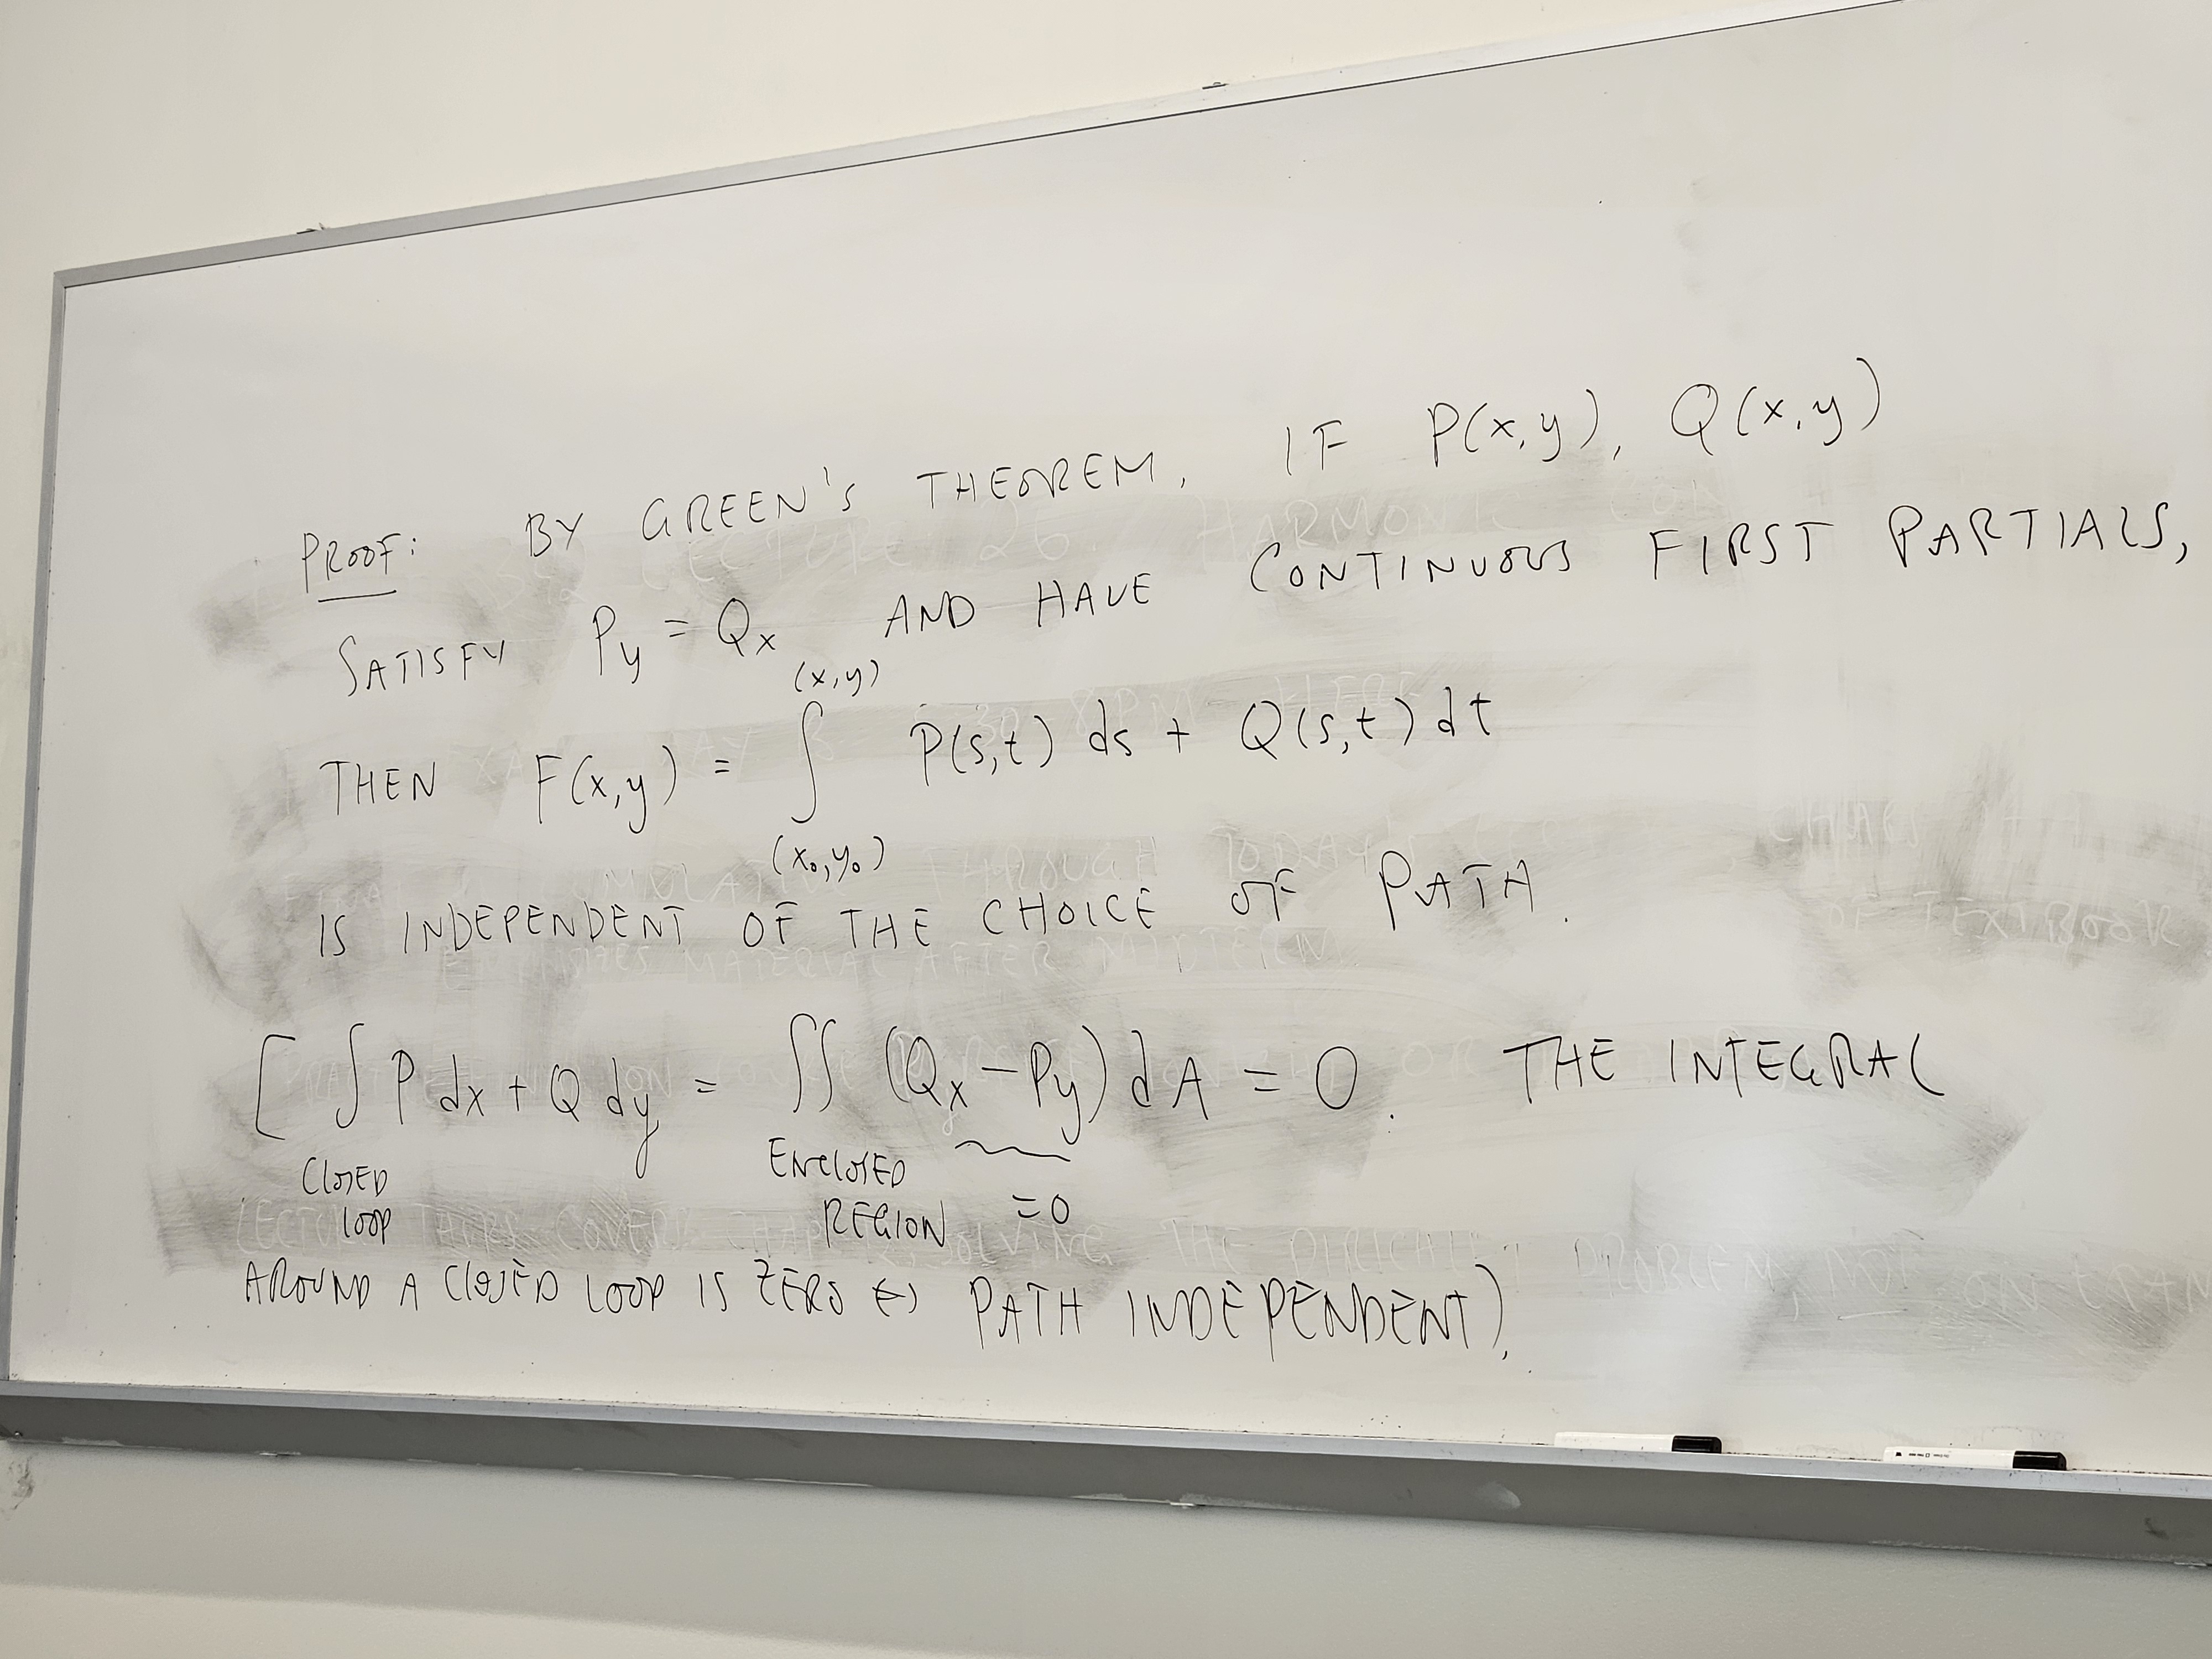 PROOF: BY GREEN'S THEOREM, IF P(x,y), Q(x,y)
SATISFY Py = Qx AND HAVE CONTINUOUS FIRST PARTIALS,
THEN F(x,y) = ∫_(x₀,y₀)^(x,y) P(s,t) ds + Q(s,t) dt
IS INDEPENDENT OF THE CHOICE OF PATH.
[ ∫ P dx + Q dy = ∫∫ (Qx - Py) dA = 0. THE INTEGRAL
CLOSED ENCLOSED
LOOP REGION =0
AROUND A CLOSED LOOP IS ZERO ↔ PATH INDEPENDENT).